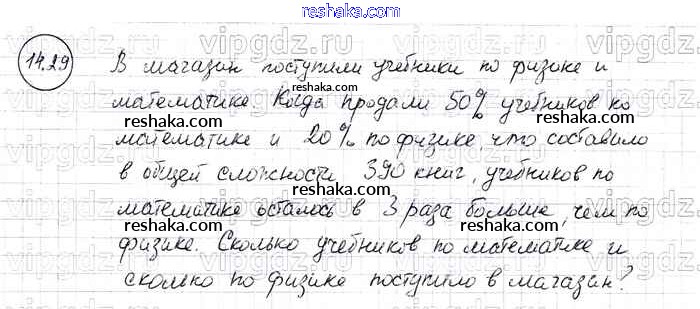 reshaka.com
14.29
В магазин поступили учебники по физике и
математике. Когда продали 50% учебников по
математике и 20% по физике, что составило
в общей сложности 390 книг, учебников по
математике осталось в 3 раза больше, чем по
физике. Сколько учебников по математике и
сколько по физике поступило в магазин?
vipgdz.ru
reshaka.com
reshaka.com
reshaka.com
reshaka.com
reshaka.com